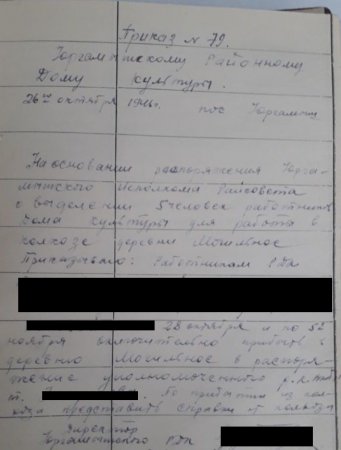 Приказ № 79.
Юргамышскому Районному
Дому культуры.
26го октября 1946г. пос Юргамыш
На основании распоряжения Юрга-
мышского Исполкома Райсовета
о выделении 5 человек работников
Дома культуры для работы в
колхозе деревни Могильное
Приказываю: Работникам РДК
28 октября и по 5е
ноября включительно прибыть в
деревню Могильное в распоря-
жение уполномоченного
т. По прибытии из кол-
хоза представить справки от колхоза
Директор
Юргамышского РДК